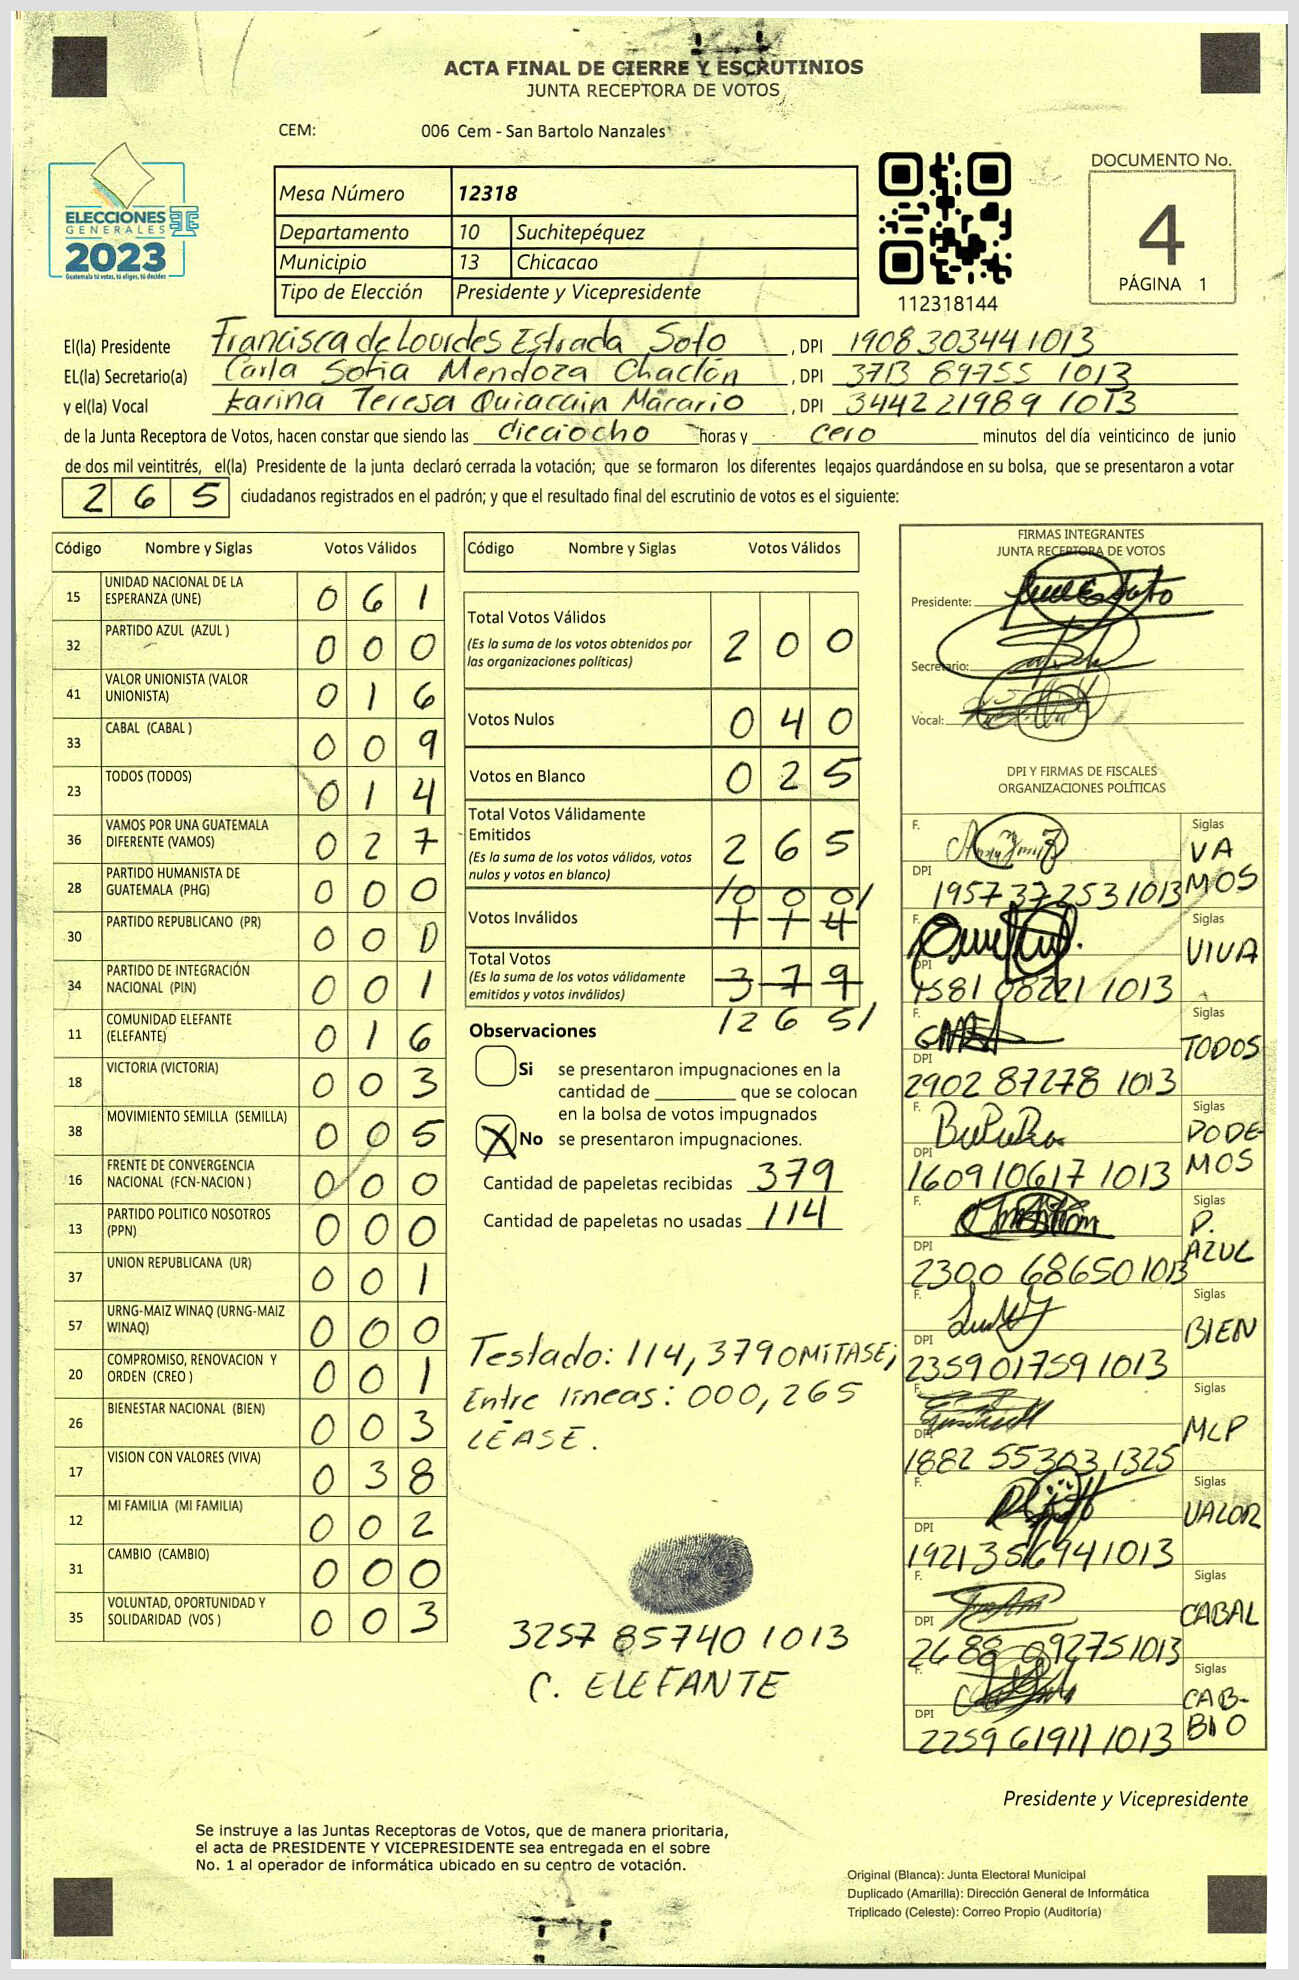 ACTA FINAL DE CIERRE Y ESCRUTINIOS
JUNTA RECEPTORA DE VOTOS
CEM: 006 Cem - San Bartolo Nanzales
ELECCIONES
GENERALES
2023
Guatemala tú votas, tú eliges, tú decides
Mesa Número 12318
Departamento 10 Suchitepéquez
Municipio 13 Chicacao
Tipo de Elección Presidente y Vicepresidente
112318144
DOCUMENTO No.
4
PÁGINA 1
El(la) Presidente Francisca de Lourdes Estrada Soto, DPI 1908 30344 1013
EL(la) Secretario(a) Carla Sofia Mendoza Chaclón, DPI 3713 89755 1013
y el(la) Vocal Karina Teresa Quiacain Macario, DPI 3442 21989 1013
de la Junta Receptora de Votos, hacen constar que siendo las dieciocho horas y cero minutos del día veinticinco de junio
de dos mil veintitrés, el(la) Presidente de la junta declaró cerrada la votación; que se formaron los diferentes legajos guardándose en su bolsa, que se presentaron a votar
2 6 5 ciudadanos registrados en el padrón; y que el resultado final del escrutinio de votos es el siguiente:
Código Nombre y Siglas Votos Válidos
15 UNIDAD NACIONAL DE LA ESPERANZA (UNE) 0 6 1
32 PARTIDO AZUL (AZUL ) 0 0 0
41 VALOR UNIONISTA (VALOR UNIONISTA) 0 1 6
33 CABAL (CABAL ) 0 0 9
23 TODOS (TODOS) 0 1 4
36 VAMOS POR UNA GUATEMALA DIFERENTE (VAMOS) 0 2 7
28 PARTIDO HUMANISTA DE GUATEMALA (PHG) 0 0 0
30 PARTIDO REPUBLICANO (PR) 0 0 0
34 PARTIDO DE INTEGRACIÓN NACIONAL (PIN) 0 0 1
11 COMUNIDAD ELEFANTE (ELEFANTE) 0 1 6
18 VICTORIA (VICTORIA) 0 0 3
38 MOVIMIENTO SEMILLA (SEMILLA) 0 0 5
16 FRENTE DE CONVERGENCIA NACIONAL (FCN-NACION ) 0 0 0
13 PARTIDO POLITICO NOSOTROS (PPN) 0 0 0
37 UNION REPUBLICANA (UR) 0 0 1
57 URNG-MAIZ WINAQ (URNG-MAIZ WINAQ) 0 0 0
20 COMPROMISO, RENOVACION Y ORDEN (CREO ) 0 0 1
26 BIENESTAR NACIONAL (BIEN) 0 0 3
17 VISION CON VALORES (VIVA) 0 3 8
12 MI FAMILIA (MI FAMILIA) 0 0 2
31 CAMBIO (CAMBIO) 0 0 0
35 VOLUNTAD, OPORTUNIDAD Y SOLIDARIDAD (VOS ) 0 0 3
Código Nombre y Siglas Votos Válidos
Total Votos Válidos 2 0 0
(Es la suma de los votos obtenidos por
las organizaciones políticas)
Votos Nulos 0 4 0
Votos en Blanco 0 2 5
Total Votos Válidamente
Emitidos 2 6 5
(Es la suma de los votos válidos, votos
nulos y votos en blanco)
/0 0 0/
Votos Inválidos 1 1 4
Total Votos 3 7 9
(Es la suma de los votos válidamente
emitidos y votos inválidos)
/2 6 5/
Observaciones
Si se presentaron impugnaciones en la
cantidad de ________ que se colocan
en la bolsa de votos impugnados
X No se presentaron impugnaciones.
Cantidad de papeletas recibidas 379
Cantidad de papeletas no usadas 114
Testado: 114, 379 OMITASE;
Entre líneas: 000, 265
LEASE.
3257 85740 1013
C. ELEFANTE
FIRMAS INTEGRANTES
JUNTA RECEPTORA DE VOTOS
Presidente:
Secretario:
Vocal:
DPI Y FIRMAS DE FISCALES
ORGANIZACIONES POLÍTICAS
F. Siglas VAMOS
DPI 1957 37253 1013
F. Siglas VIVA
DPI 1581 08221 1013
F. Siglas TODOS
DPI 2902 87278 1013
F. Siglas PODE-MOS
DPI 1609 10617 1013
F. Siglas P. AZUL
DPI 2300 68650 1013
F. Siglas BIEN
DPI 2359 01759 1013
F. Siglas MLP
DPI 1882 55303 1325
F. Siglas VALOR
DPI 1921 35694 1013
F. Siglas CABAL
DPI 2688 09275 1013
F. Siglas CAB-BIO
DPI 2259 61911 1013
Presidente y Vicepresidente
Se instruye a las Juntas Receptoras de Votos, que de manera prioritaria,
el acta de PRESIDENTE Y VICEPRESIDENTE sea entregada en el sobre
No. 1 al operador de informática ubicado en su centro de votación.
Original (Blanca): Junta Electoral Municipal
Duplicado (Amarilla): Dirección General de Informática
Triplicado (Celeste): Correo Propio (Auditoría)